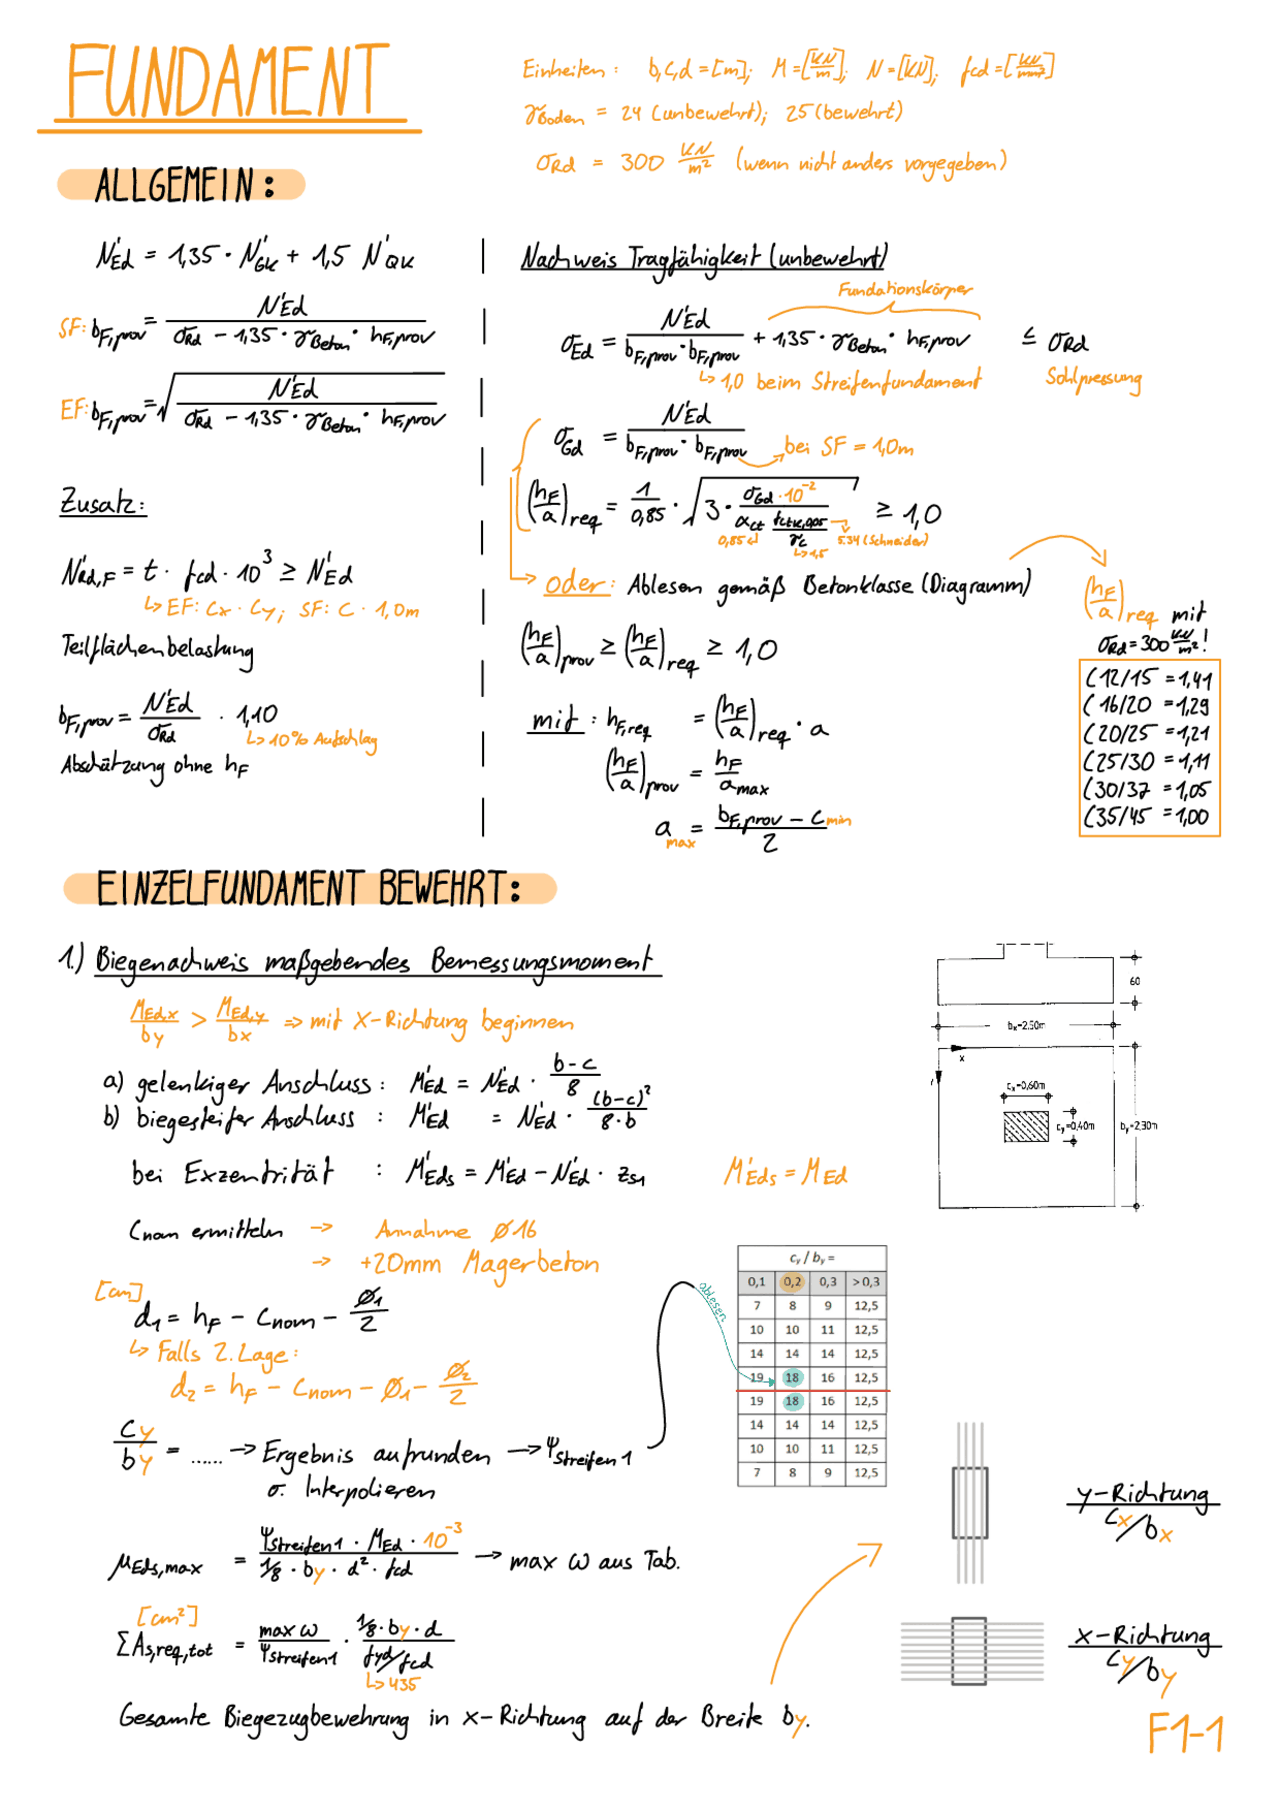 FUNDAMENT
Einheiten: b,c,d = [m]; M = [kN/m]; N = [kN]; fcd = [kN/mm²]
γBoden = 24 (unbewehrt); 25 (bewehrt)
σRd = 300 kN/m² (wenn nicht anders vorgegeben)
ALLGEMEIN:
N'Ed = 1,35 · N'Gk + 1,5 N'Qk
SF: bF,prov = N'Ed / (σRd − 1,35 · γBeton · hF,prov)
EF: bF,prov = √(N'Ed / (σRd − 1,35 · γBeton · hF,prov))
Zusatz:
N'Rd,F = t · fcd · 10³ ≥ N'Ed
↳ EF: Cx · Cy; SF: C · 1,0m
Teilflächenbelastung
bF,prov = N'Ed / σRd · 1,10
↳ 10% Aufschlag
Abschätzung ohne hF
Nachweis Tragfähigkeit (unbewehrt)
Fundationskörper
σEd = N'Ed / (bF,prov · bF,prov) + 1,35 · γBeton · hF,prov ≤ σRd
↳ 1,0 beim Streifenfundament
Sohlpressung
σGd = N'Ed / (bF,prov · bF,prov)
bei SF = 1,0m
(hF/a)req = 1/0,85 · √(3 · (σGd · 10⁻²) / (αct · fctk,0,05/γc)) ≥ 1,0
0,85 ↲
↳ 1,5
5.34 (Schneider)
oder: Ablesen gemäß Betonklasse (Diagramm)
(hF/a)prov ≥ (hF/a)req ≥ 1,0
mit: hF,req = (hF/a)req · a
(hF/a)prov = hF / amax
amax = (bF,prov − cmin) / 2
(hF/a)req mit
σRd = 300 kN/m² !
C12/15 = 1,41
C16/20 = 1,29
C20/25 = 1,21
C25/30 = 1,11
C30/37 = 1,05
C35/45 = 1,00
EINZELFUNDAMENT BEWEHRT:
1.) Biegenachweis maßgebendes Bemessungsmoment
MEd,x/by > MEd,y/bx ⇒ mit X-Richtung beginnen
a) gelenkiger Anschluss: M'Ed = N'Ed · (b-c)/8
b) biegesteifer Anschluss: M'Ed = N'Ed · (b-c)²/(8·b)
bei Exzentrität: M'Eds = M'Ed − N'Ed · zs1
M'Eds = MEd
Cnom ermitteln → Annahme ∅16
→ +20mm Magerbeton
[cm]
d1 = hF − Cnom − ∅1/2
↳ Falls 2. Lage:
d2 = hF − Cnom − ∅1 − ∅2/2
cy/by = ...... → Ergebnis aufrunden → ΨStreifen1
o. Interpolieren
ablesen
μEds,max = (ΨStreifen1 · MEd · 10⁻³) / (1/8 · by · d² · fcd) → max ω aus Tab.
[cm²]
ΣAs,req,tot = max ω / ΨStreifen1 · (1/8 · by · d) / (fyd/fcd)
↳ 435
Gesamte Biegezugbewehrung in x-Richtung auf der Breite by.
60
bx=2.50m
x
cx=0,60m
cy=0,40m
by=2,30m
cy / by =
0,1 0,2 0,3 >0,3
7 8 9 12,5
10 10 11 12,5
14 14 14 12,5
19 18 16 12,5
19 18 16 12,5
14 14 14 12,5
10 10 11 12,5
7 8 9 12,5
y-Richtung
cx/bx
x-Richtung
cy/by
F1-1